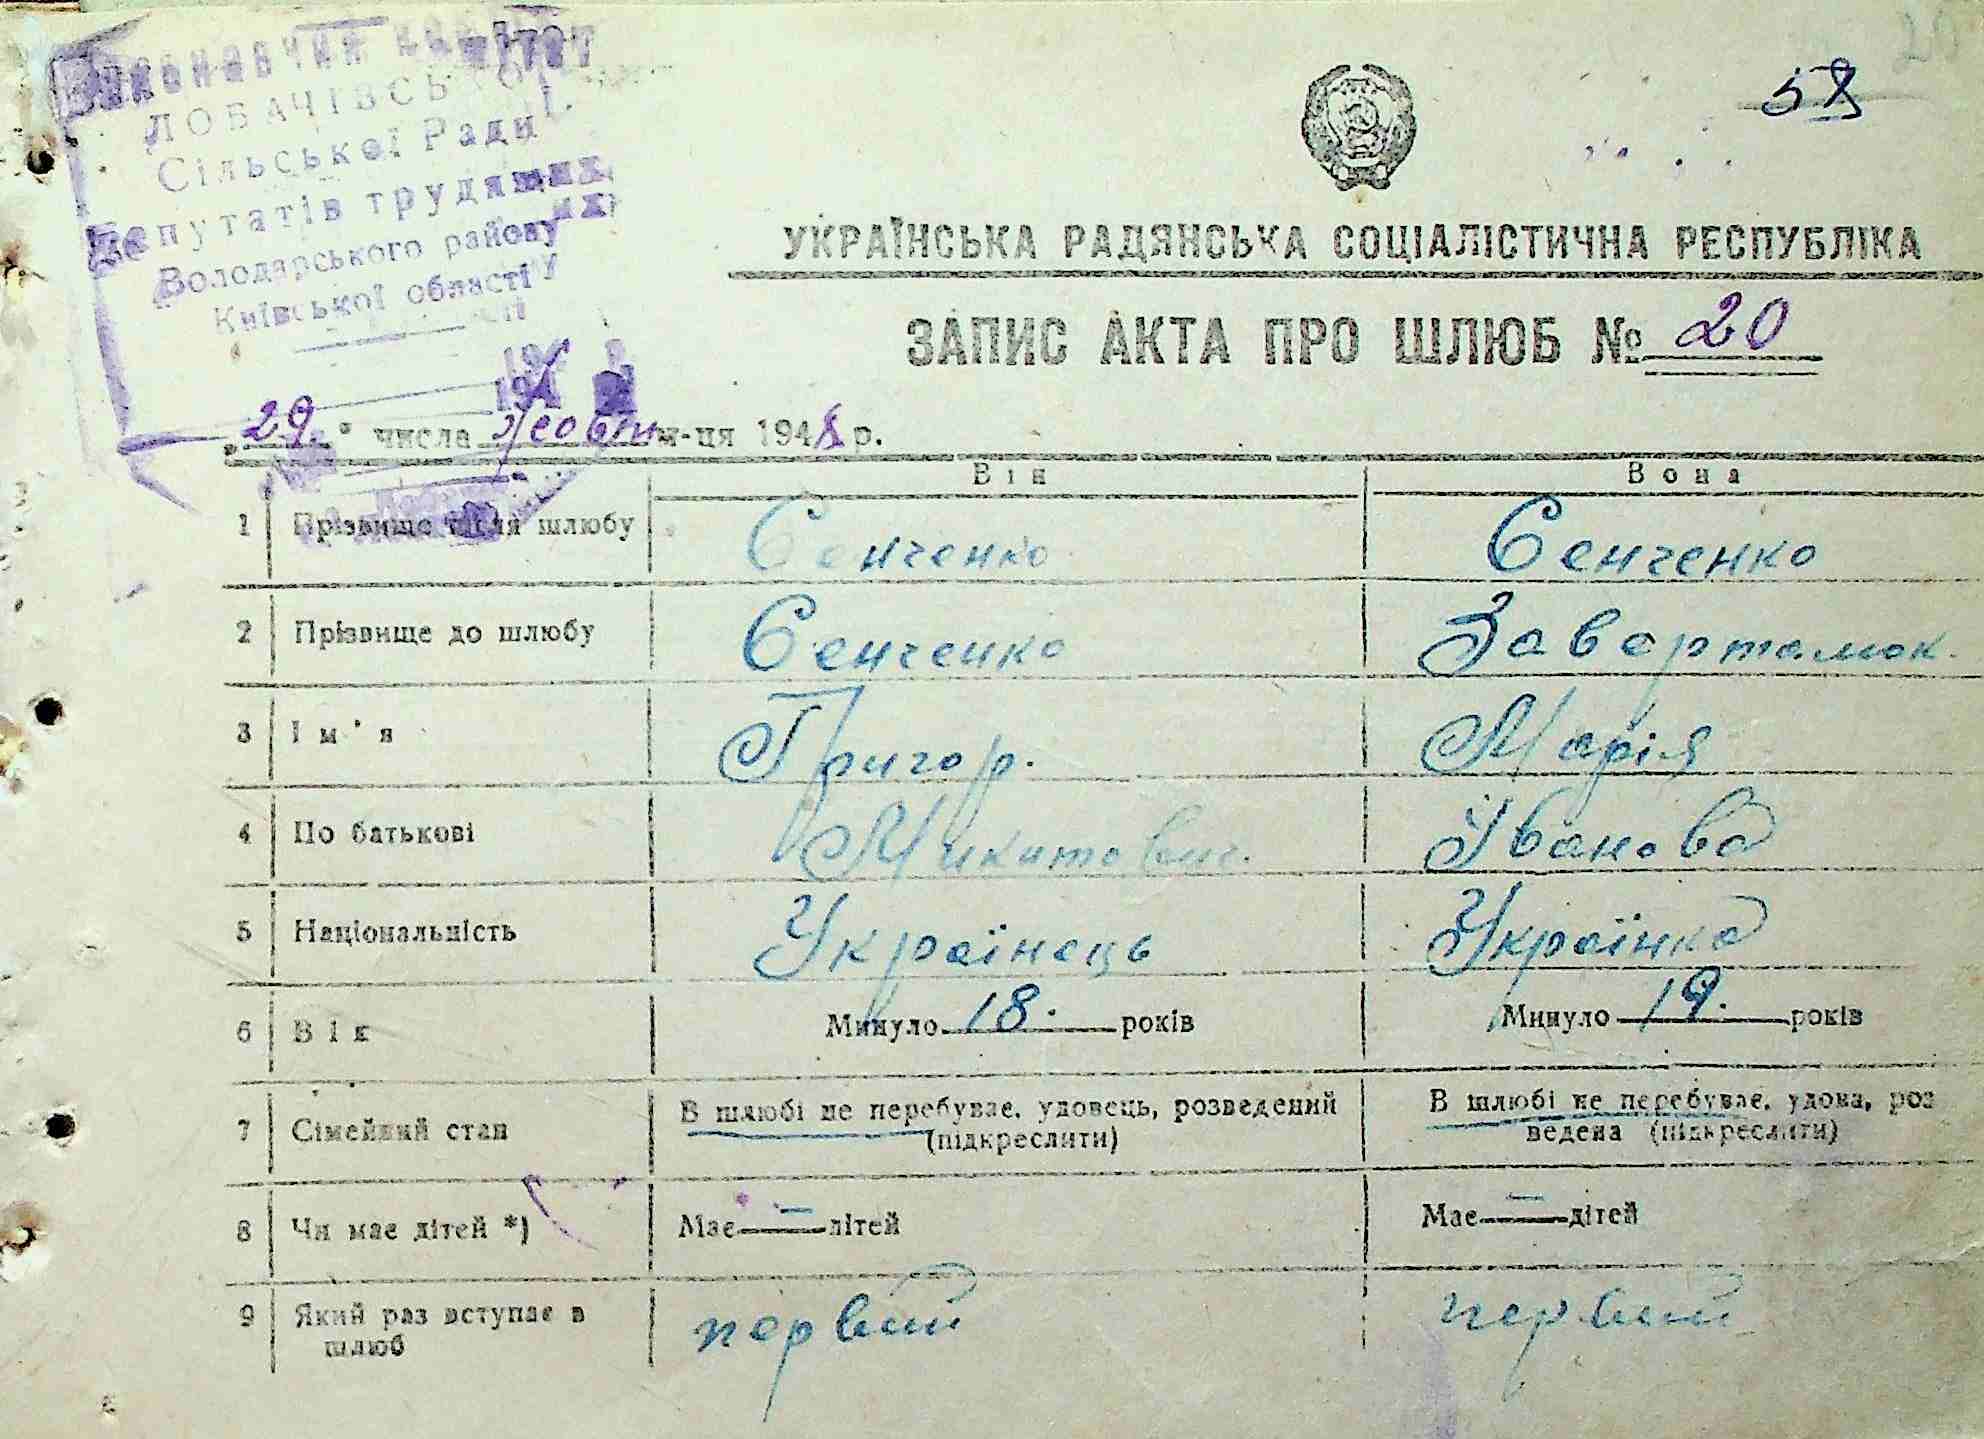 Виконавчий комітет
ЛОБАЧІВСЬКОЇ
Сільської Ради
Депутатів трудящих
Володарського району
Київської області
58
УКРАЇНСЬКА РАДЯНСЬКА СОЦІАЛІСТИЧНА РЕСПУБЛІКА
ЗАПИС АКТА ПРО ШЛЮБ № 20
"29" числа жовтн м-ця 1948 р.
Він Вона
1 Прізвище після шлюбу Сенченко Сенченко
2 Прізвище до шлюбу Сенченко Завертамок.
3 Ім'я Григор. Марія
4 По батькові Микитович. Іванова
5 Національність Українець Українка
6 Вік Минуло 18. років Минуло 19. років
7 Сімейний стан В шлюбі не перебуває, удовець, розведений (підкреслити) В шлюбі не перебуває, удова, роз
ведена (підкреслити)
8 Чи має дітей *) Має — дітей Має — дітей
9 Який раз вступає в шлюб первий первий